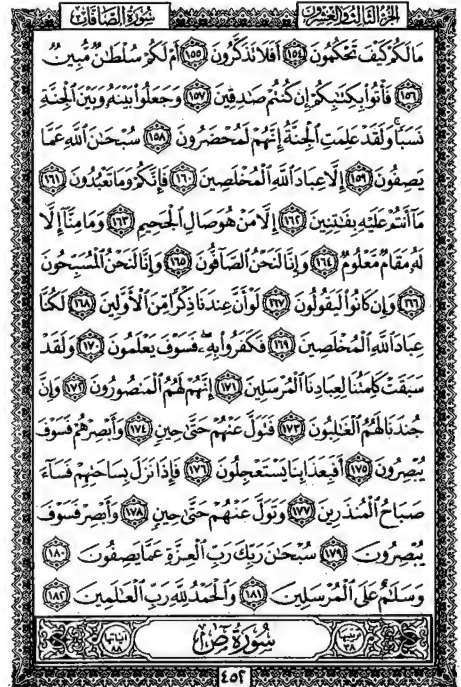 سُورَةُ الصَّافَّاتِ الجُزْءُ الثَّالِثُ وَالعِشْرُونَ
مَا لَكُمْ كَيْفَ تَحْكُمُونَ ﴿١٥٤﴾ أَفَلَا تَذَكَّرُونَ ﴿١٥٥﴾ أَمْ لَكُمْ سُلْطَانٌ مُّبِينٌ
﴿١٥٦﴾ فَأْتُوا بِكِتَابِكُمْ إِن كُنتُمْ صَادِقِينَ ﴿١٥٧﴾ وَجَعَلُوا بَيْنَهُ وَبَيْنَ الْجِنَّةِ
نَسَبًا ۚ وَلَقَدْ عَلِمَتِ الْجِنَّةُ إِنَّهُمْ لَمُحْضَرُونَ ﴿١٥٨﴾ سُبْحَانَ اللَّهِ عَمَّا
يَصِفُونَ ﴿١٥٩﴾ إِلَّا عِبَادَ اللَّهِ الْمُخْلَصِينَ ﴿١٦٠﴾ فَإِنَّكُمْ وَمَا تَعْبُدُونَ ﴿١٦١﴾
مَا أَنتُمْ عَلَيْهِ بِفَاتِنِينَ ﴿١٦٢﴾ إِلَّا مَنْ هُوَ صَالِ الْجَحِيمِ ﴿١٦٣﴾ وَمَا مِنَّا إِلَّا
لَهُ مَقَامٌ مَّعْلُومٌ ﴿١٦٤﴾ وَإِنَّا لَنَحْنُ الصَّافُّونَ ﴿١٦٥﴾ وَإِنَّا لَنَحْنُ الْمُسَبِّحُونَ
﴿١٦٦﴾ وَإِن كَانُوا لَيَقُولُونَ ﴿١٦٧﴾ لَوْ أَنَّ عِندَنَا ذِكْرًا مِّنَ الْأَوَّلِينَ ﴿١٦٨﴾ لَكُنَّا
عِبَادَ اللَّهِ الْمُخْلَصِينَ ﴿١٦٩﴾ فَكَفَرُوا بِهِ ۖ فَسَوْفَ يَعْلَمُونَ ﴿١٧٠﴾ وَلَقَدْ
سَبَقَتْ كَلِمَتُنَا لِعِبَادِنَا الْمُرْسَلِينَ ﴿١٧١﴾ إِنَّهُمْ لَهُمُ الْمَنصُورُونَ ﴿١٧٢﴾ وَإِنَّ
جُندَنَا لَهُمُ الْغَالِبُونَ ﴿١٧٣﴾ فَتَوَلَّ عَنْهُمْ حَتَّىٰ حِينٍ ﴿١٧٤﴾ وَأَبْصِرْهُمْ فَسَوْفَ
يُبْصِرُونَ ﴿١٧٥﴾ أَفَبِعَذَابِنَا يَسْتَعْجِلُونَ ﴿١٧٦﴾ فَإِذَا نَزَلَ بِسَاحَتِهِمْ فَسَاءَ
صَبَاحُ الْمُنذَرِينَ ﴿١٧٧﴾ وَتَوَلَّ عَنْهُمْ حَتَّىٰ حِينٍ ﴿١٧٨﴾ وَأَبْصِرْ فَسَوْفَ
يُبْصِرُونَ ﴿١٧٩﴾ سُبْحَانَ رَبِّكَ رَبِّ الْعِزَّةِ عَمَّا يَصِفُونَ ﴿١٨٠﴾
وَسَلَامٌ عَلَى الْمُرْسَلِينَ ﴿١٨١﴾ وَالْحَمْدُ لِلَّهِ رَبِّ الْعَالَمِينَ ﴿١٨٢﴾
ترتيبها ٣٨ سُورَةُ صٓ آياتها ٨٨
٤٥٢